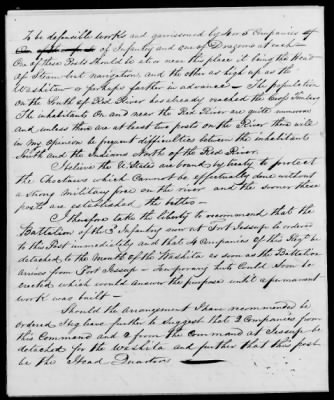 To be defensible works and garrisoned by 4 or 5 Companies of
of Infantry and one of Dragoons at each –
One of these Posts should be at or near this place it being the Head
of Steam boat navigation, and the other as high up as the
Washita – or perhaps farther in advance – The population
on the South of Red River has already reached the Cross Timbers
The inhabitants On and near the Red River are quite numerous
and unless there are at least two posts on the River there will
in my opinion be frequent difficulties between the inhabitants
South and the Indians North of the Red River.
I believe the U States are bound by treaty to protect
the Choctaws which cannot be effectually done without
a strong Military force on the river and the sooner these
posts are established the better –
I therefore take the liberty to recommend that the
Battalion of the 3d Infantry now at Fort Jessup be ordered
to this Post immediately and that 4 Companies of this Regt be
detached to the Mouth of the Washita as soon as the Battalion
arrives from Fort Jessup – Temporary huts could soon be
erected which would answer the purpose until a permanent
work was built –
Should the arrangement I have recommended be
ordered I beg leave further to suggest that 2 Companies from
this Command and 2 from the Command at Jessup be
detached for the Washita and further that this post
be the Head Quarters